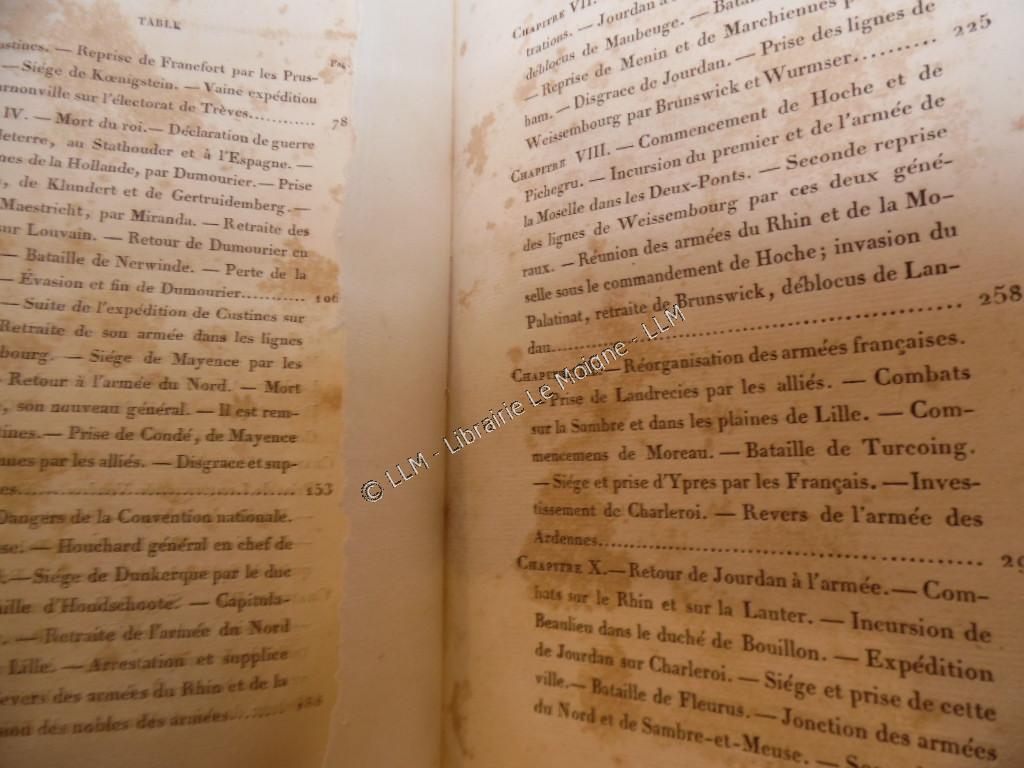 TABLE
Pag.
ustines. — Reprise de Francfort par les Prus-
— Siége de Kœnigstein. — Vaine expédition
urnonville sur l'électorat de Trèves............ 78
IV. — Mort du roi. — Déclaration de guerre
leterre, au Stathouder et à l'Espagne. —
nes de la Hollande, par Dumourier. — Prise
, de Klundert et de Gertruidemberg. —
Maestricht, par Miranda. — Retraite des
sur Louvain. — Retour de Dumourier en
— Bataille de Nerwinde. — Perte de la
— Évasion et fin de Dumourier........... 106
— Suite de l'expédition de Custines sur
Retraite de son armée dans les lignes
bourg. — Siége de Mayence par les
Retour à l'armée du Nord. — Mort
, son nouveau général. — Il est rem-
tines. — Prise de Condé, de Mayence
nnes par les alliés. — Disgrace et sup-
es............................................. 153
Dangers de la Convention nationale.
se. — Houchard général en chef de
— Siége de Dunkerque par le duc
aille d'Hondschoote. — Capitula-
— Retraite de l'armée du Nord
Lille. — Arrestation et supplice
evers des armées du Rhin et de la
des nobles des armées........
CHAPITRE VII.
trations. — Jourdan
déblocus de Maubeuge. —
— Reprise de Menin et de Marchiennes
ham. — Disgrace de Jourdan. — Prise des lignes de
Weissembourg par Brunswick et Wurmser......... 225
CHAPITRE VIII. — Commencement de Hoche et de
Pichegru. — Incursion du premier et de l'armée de
la Moselle dans les Deux-Ponts. — Seconde reprise
des lignes de Weissembourg par ces deux géné-
raux. — Réunion des armées du Rhin et de la Mo-
selle sous le commandement de Hoche; invasion du
Palatinat, retraite de Brunswick, déblocus de Lan-
dau.................................................. 258
CHAPITRE — Réorganisation des armées françaises.
— Prise de Landrecies par les alliés. — Combats
sur la Sambre et dans les plaines de Lille. — Com-
mencemens de Moreau. — Bataille de Turcoing.
— Siége et prise d'Ypres par les Français. — Inves-
tissement de Charleroi. — Revers de l'armée des
Ardennes............................................. 29
CHAPITRE X. — Retour de Jourdan à l'armée. — Com-
bats sur le Rhin et sur la Lauter. — Incursion de
Beaulieu dans le duché de Bouillon. — Expédition
de Jourdan sur Charleroi. — Siége et prise de cette
ville. — Bataille de Fleurus. — Jonction des armées
du Nord et de Sambre-et-Meuse. —
© LLM - Librairie Le Moigne - LLM